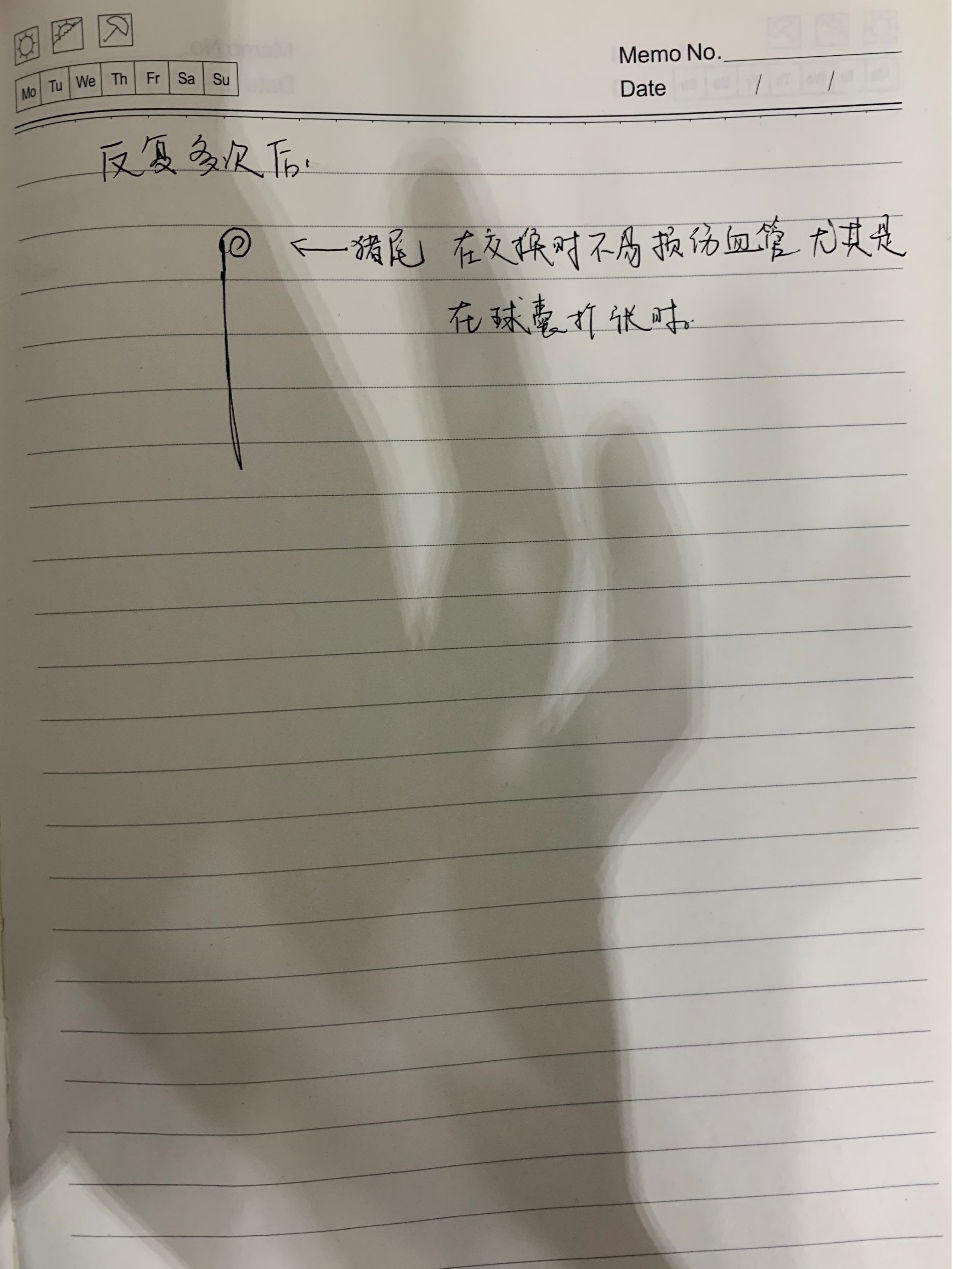 Memo No.
Mo Tu We Th Fr Sa Su
Date / /
反复多次后.
←猪尾 在交换时不易损伤血管 尤其是
在球囊扩张时。